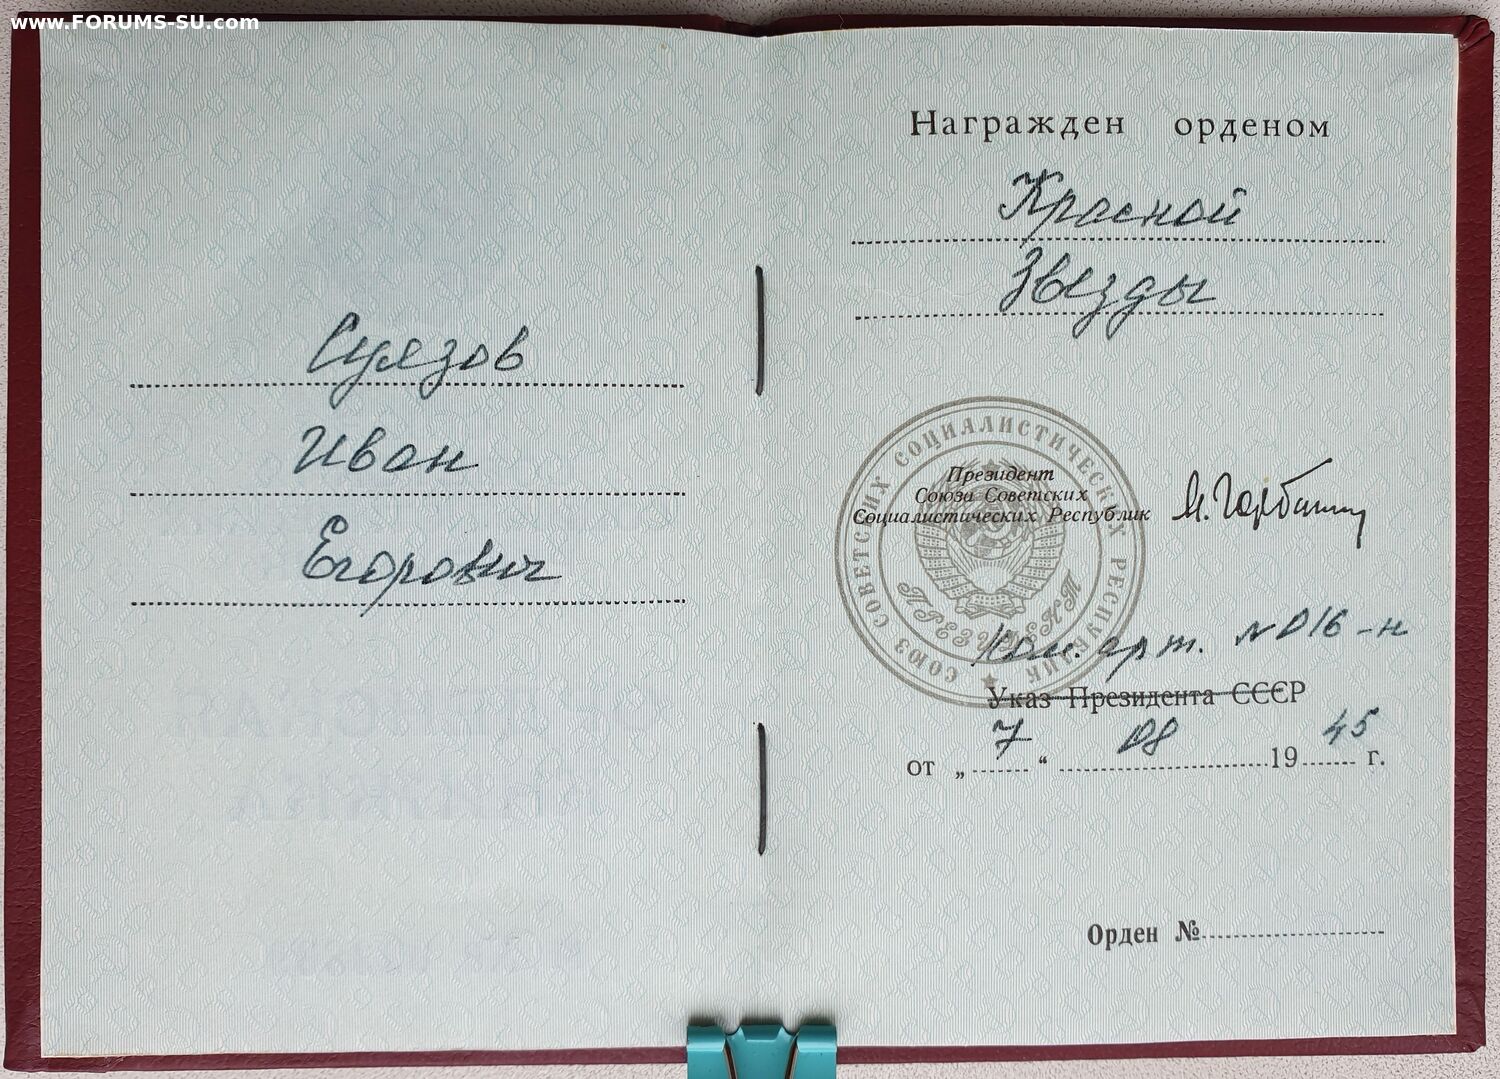 www.FORUMS-SU.com
Суязов
Иван
Егорович
Награжден орденом
Красной
Звезды
СОЮЗ СОВЕТСКИХ СОЦИАЛИСТИЧЕСКИХ РЕСПУБЛИК
ПРЕЗИДЕНТ
Президент
Союза Советских
Социалистических Республик
М. Горбачев
Ком. арт. № 016-н
Указ Президента СССР
от „ 7 “ 08 19 45 г.
Орден №